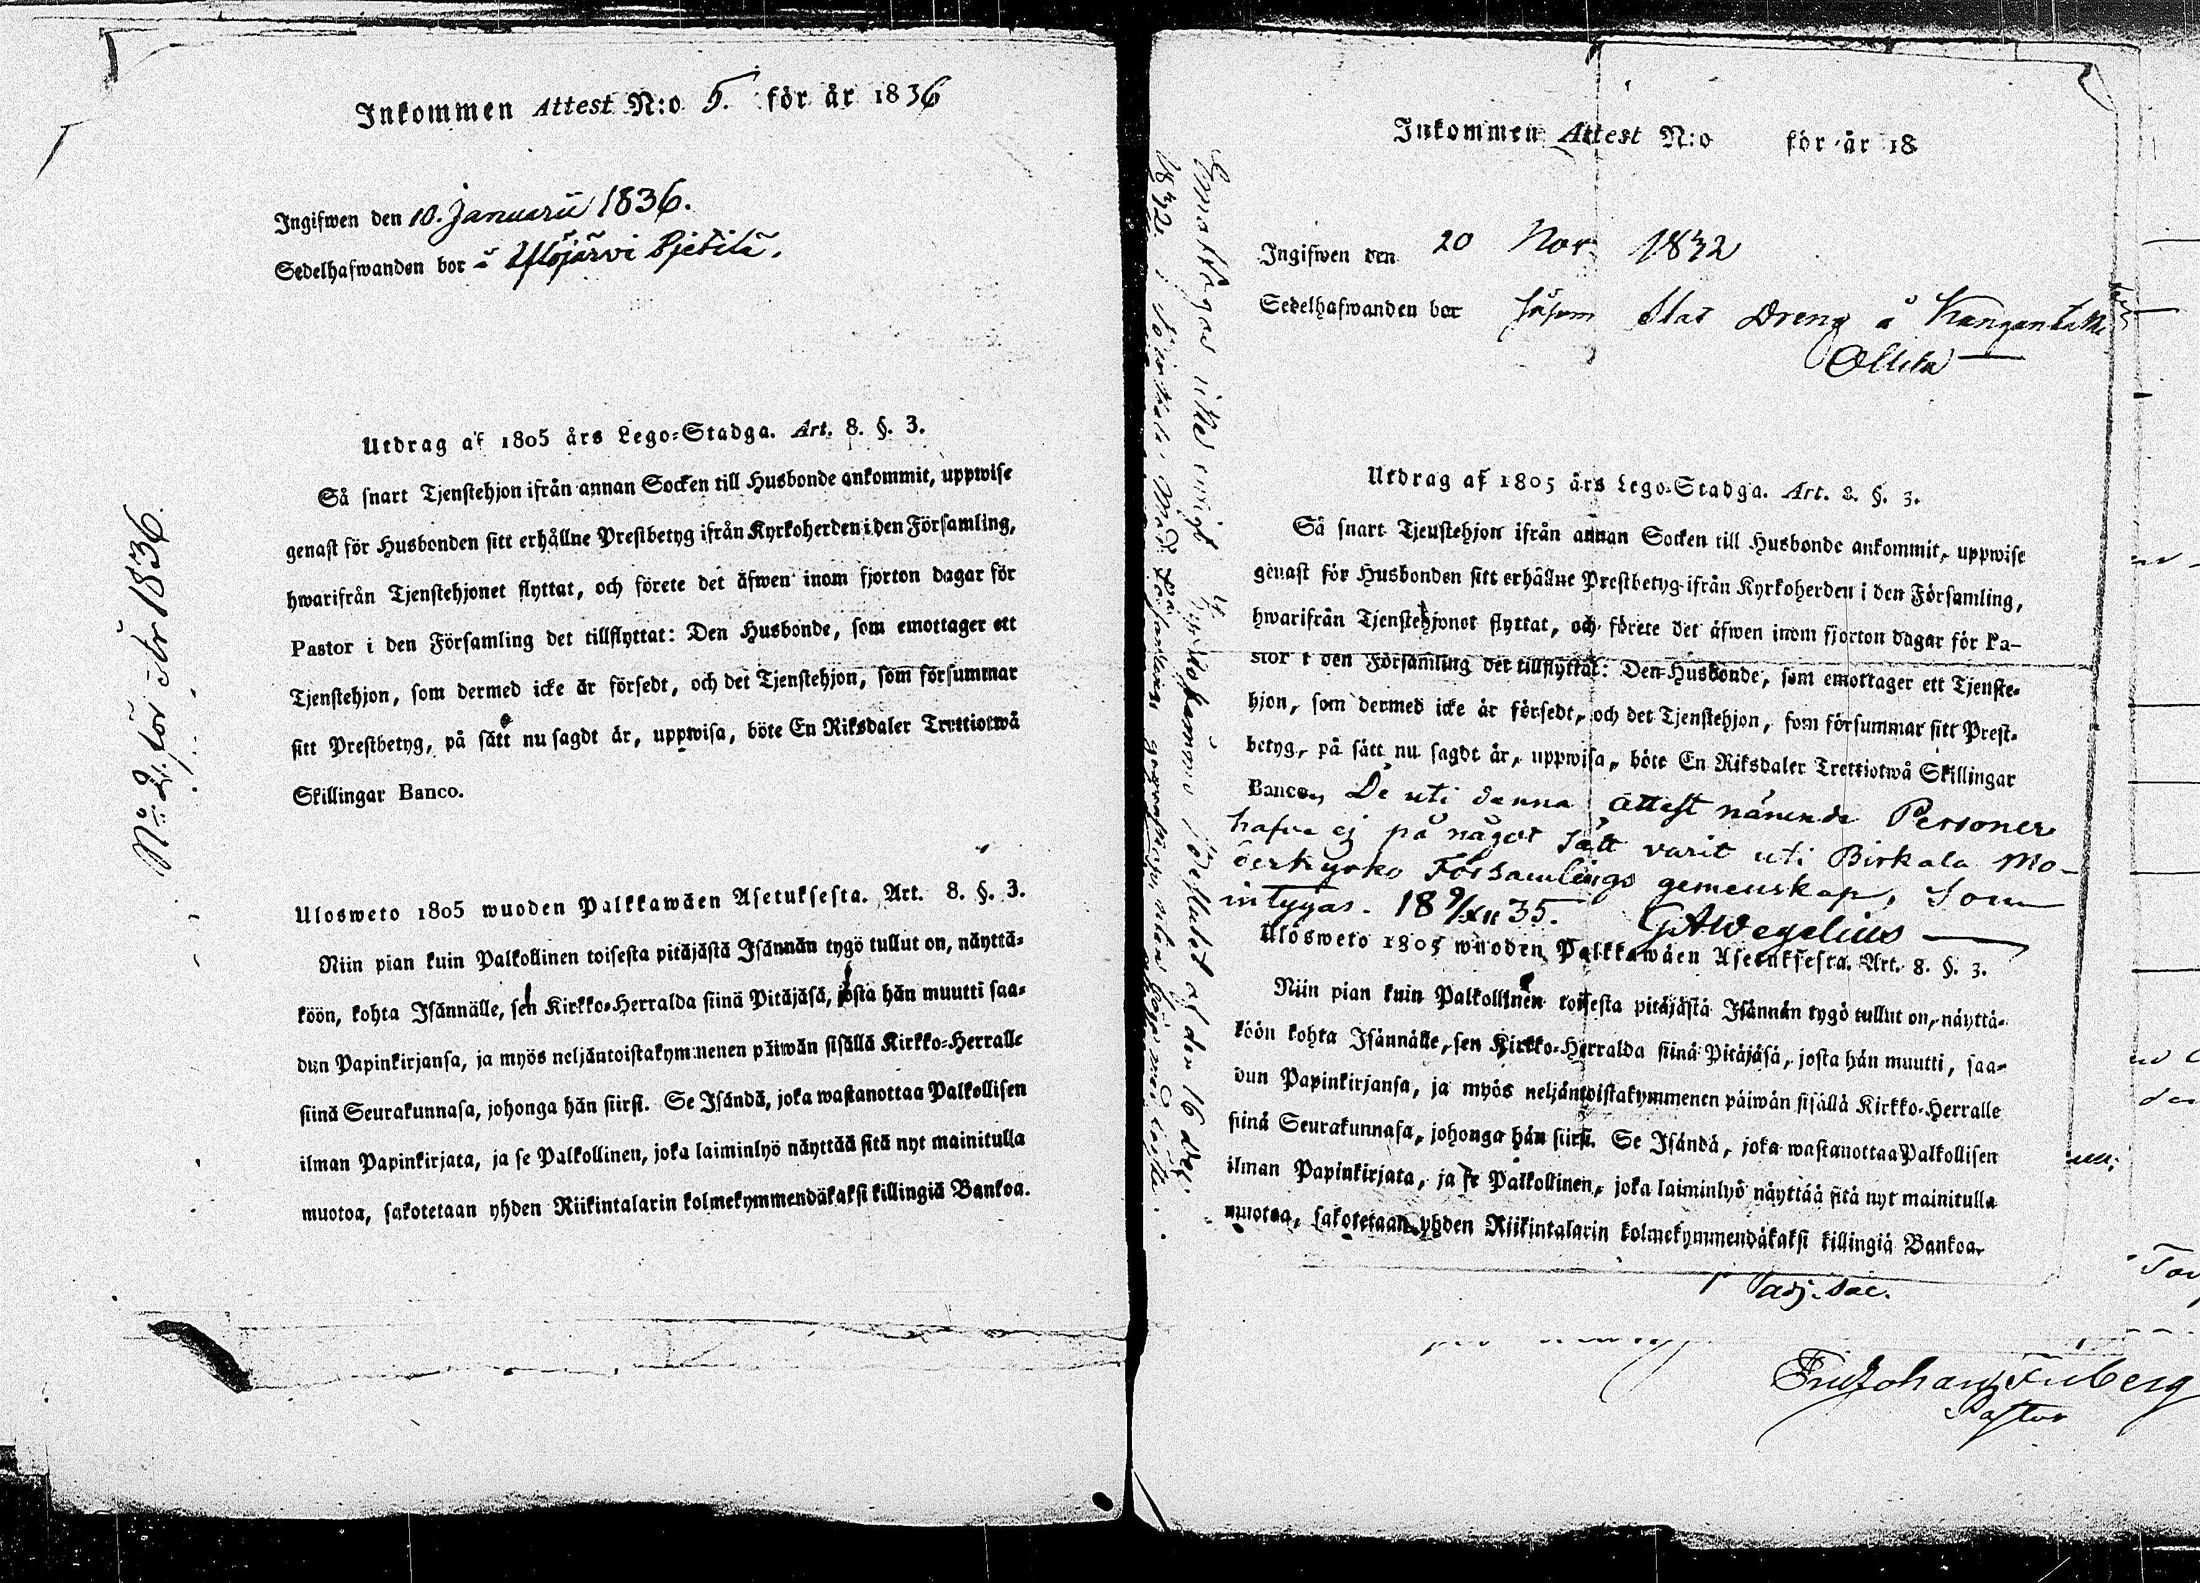 Inkommen Attest N:o 5. för år 1836
Ingifwen den 10. Januarii 1836.
Sedelhafwanden bor å Ylöjärvi Pjetilä.
Utdrag af 1805 års Lego-Stadga. Art. 8. §. 3.
Så snart Tjenstehjon ifrån annan Socken till Husbonde ankommit, uppwise
genast för Husbonden sitt erhållne Prestbetyg ifrån Kyrkoherden i den Församling,
hwarifrån Tjenstehjonet flyttat, och förete det äfwen inom fjorton dagar för
Pastor i den Församling det tillflyttat: Den Husbonde, som emottager ett
Tjenstehjon, som dermed icke är försedt, och det Tjenstehjon, som försummar
sitt Prestbetyg, på sätt nu sagdt är, uppwisa, böte En Riksdaler Trettiotwå
Skillingar Banco.
Ulosweto 1805 wuoden Palkkawäen Asetuksesta. Art. 8. §. 3.
Niin pian kuin Palkollinen toisesta pitäjästä Isännän tygö tullut on, näyttä-
köön, kohta Isännälle, sen Kirkko-Herralda siinä Pitäjäsä, josta hän muutti saa-
dun Papinkirjansa, ja myös neljäntoistakymmenen päiwän sisällä Kirkko-Herralle
siinä Seurakunnasa, johonga hän siirsi. Se Isändä, joka wastanottaa Palkollisen
ilman Papinkirjata, ja se Palkollinen, joka laiminlyö näyttää sitä nyt mainitulla
muotoa, sakotetaan yhden Riikintalarin kolmekymmendäkaksi killingiä Bankoa.
N:o 2. för år 1836.
Inkommen Attest N:o för år 18
Ingifwen den 20 Nov. 1832
Sedelhafwanden bor såsom Stat Dreng å Kangan
Ollila
Utdrag af 1805 års Lego-Stadga. Art. 8. §. 3.
Så snart Tjenstehjon ifrån annan Socken till Husbonde ankommit, uppwise
genast för Husbonden sitt erhållne Prestbetyg ifrån Kyrkoherden i den Församling,
hwarifrån Tjenstehjonet flyttat, och förete det äfwen inom fjorton dagar för Pa-
stor i den Församling det tillflyttat: Den Husbonde, som emottager ett Tjenste-
hjon, som dermed icke är försedt, och det Tjenstehjon, som försummar sitt Prest-
betyg, på sätt nu sagdt är, uppwisa, böte En Riksdaler Trettiotwå Skillingar
Banco. De uti denna attest nämnde Personer
hafva ej på något sätt varit uti Birkala Mo-
derkyrko Församlings gemenskap, Som
intygas. 18 9/XII 35. GAWegelius
Ulosweto 1805 wuoden Palkkawäen Asetuksesta. Art. 8. §. 3.
Niin pian kuin Palkollinen toisesta pitäjästä Isännän tygö tullut on, näyttä-
köön kohta Isännälle, sen Kirkko-Herralda siinä Pitäjäsä, josta hän muutti, saa-
dun Papinkirjansa, ja myös neljäntoistakymmenen päiwän sisällä Kirkko-Herralle
siinä Seurakunnasa, johonga hän siirsi. Se Isändä, joka wastanottaa Palkollisen
ilman Papinkirjata, ja se Palkollinen, joka laiminlyö näyttää sitä nyt mainitulla
muotoa, sakotetaan yhden Riikintalarin kolmekymmendäkaksi killingiä Bankoa.
adj. Sac.
Johan Friberg
Pastor